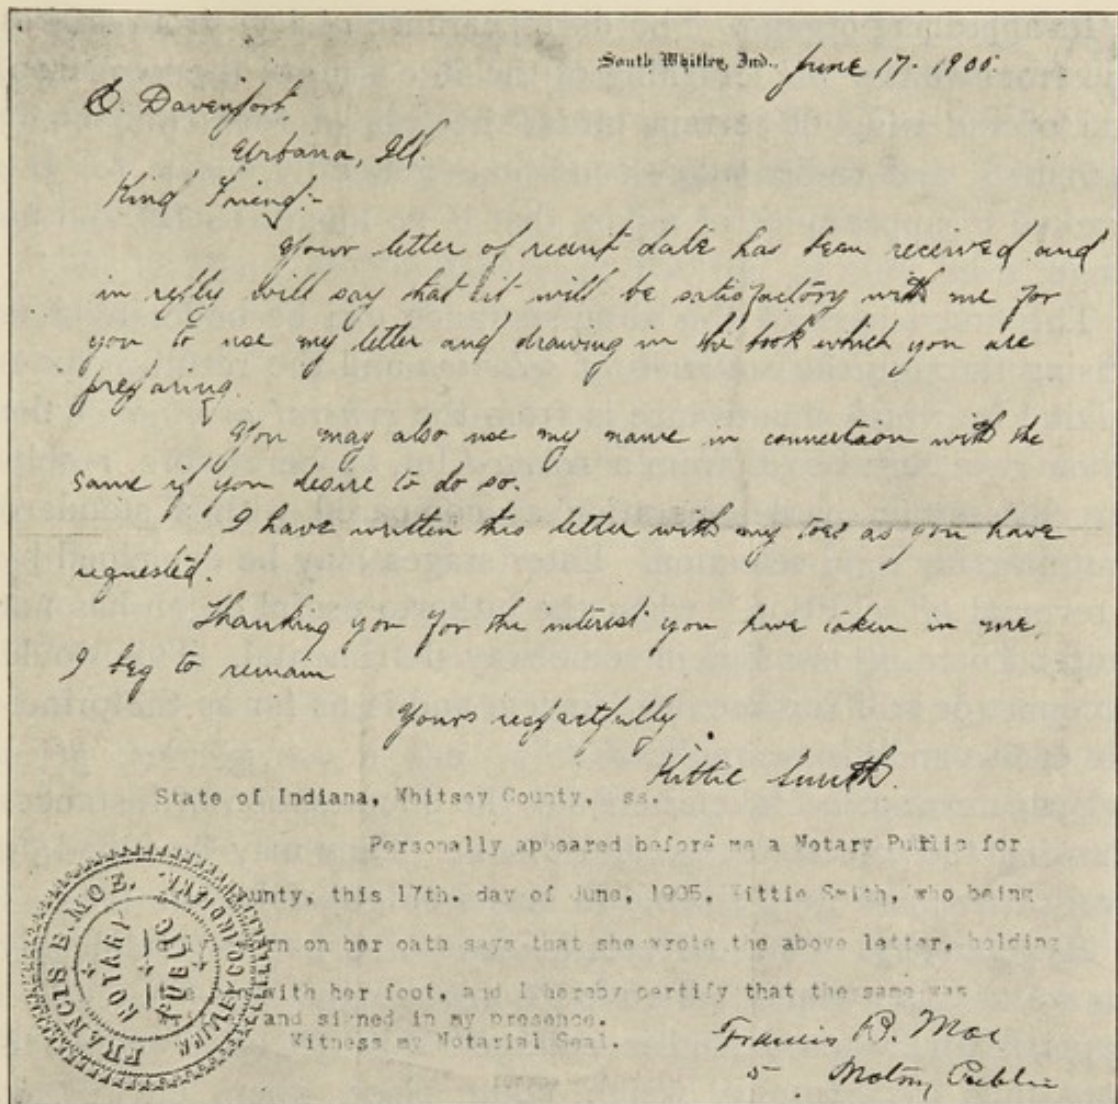 South Whitley, Ind., June 17- 1905.
C. Davenport,
Urbana, Ill.
Kind Friend:-
Your letter of recent date has been received and
in reply will say that it will be satisfactory with me for
you to use my letter and drawing in the book which you are
preparing.
You may also use my name in connection with the
same if you desire to do so.
I have written this letter with my toes as you have
requested.
Thanking you for the interest you have taken in me,
I beg to remain
Yours respectfully
Kittie Smith.
State of Indiana, Whitsey County, ss.
Personally appeared before me a Notary Public for
County, this 17th. day of June, 1905, Kittie Smith, who being
duly sworn on her oath says that she wrote the above letter, holding
the pen with her foot, and I hereby certify that the same was
written and signed in my presence.
Witness my Notarial Seal.
Francis E. Moe
Notary Public
FRANCIS E. MOE.
NOTARY
PUBLIC
WHITLEY CO. INDIANA.